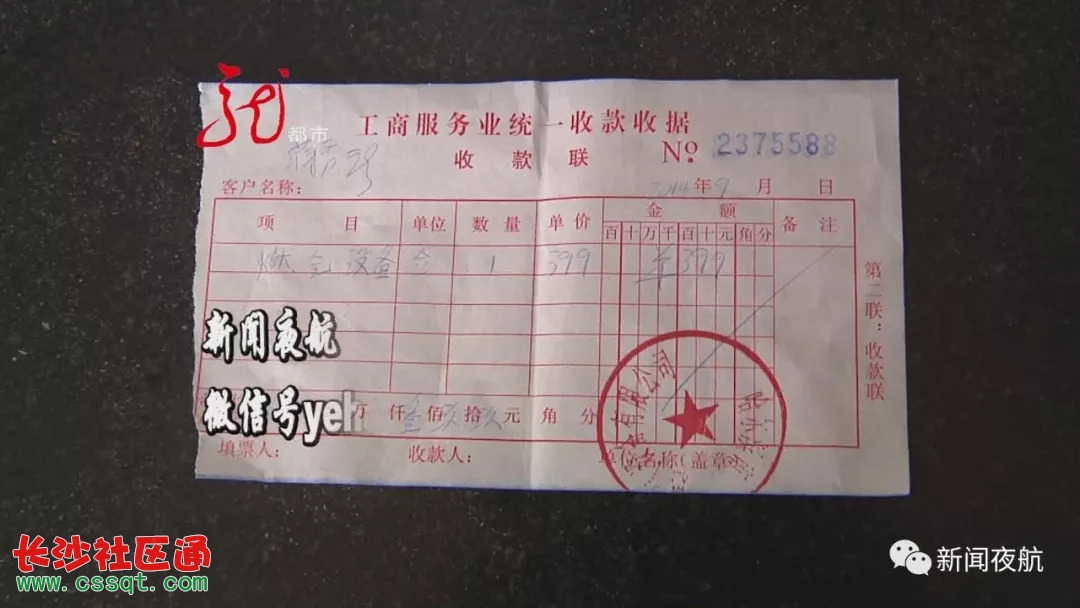 都市
工商服务业统一收款收据
收款联 № 2375588
客户名称： 年9月 日
项目 单位 数量 单价 金额 备注
百十万千百十元角分
燃气设备 台 1 399 ¥399
第二联：收款联
新闻夜航
微信号yeh
万仟叁佰玖拾玖元角分
填票人： 收款人： 单位名称(盖章)
有限公司
长沙社区通
www.cssqt.com
新闻夜航